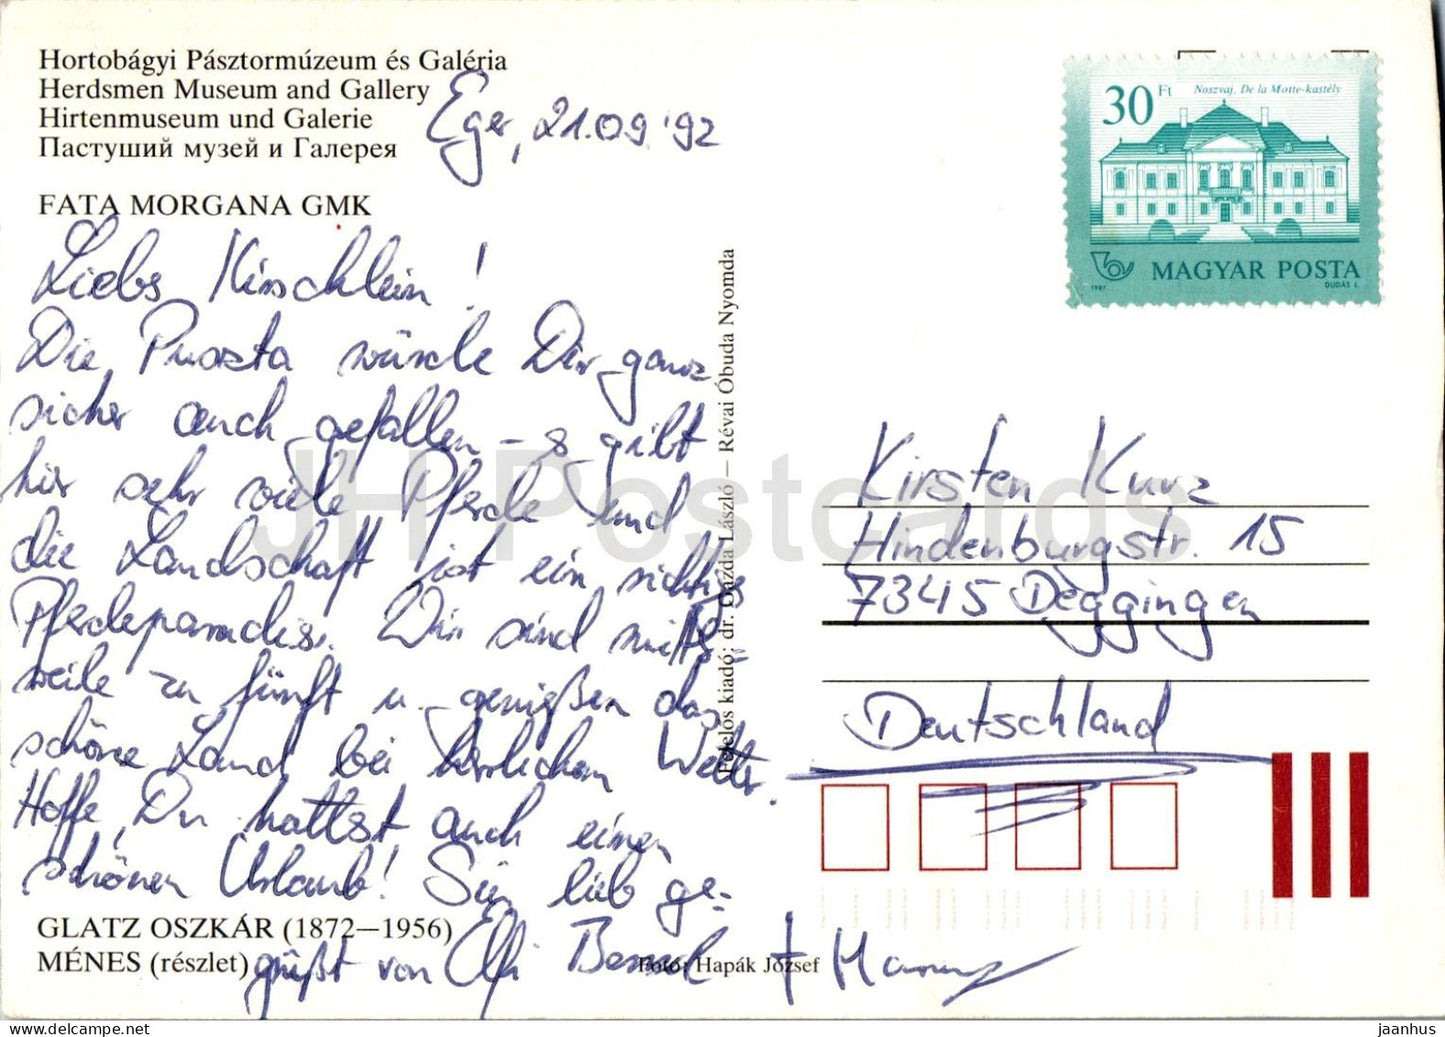 Hortobágyi Pásztormúzeum és Galéria
Herdsmen Museum and Gallery
Hirtenmuseum und Galerie
Пастуший музей и Галерея
Eger, 21.09 '92
FATA MORGANA GMK
Liebs Kirschlein!
Die Puszta würde Dir ganz
sicher auch gefallen - s gibt
hier sehr viele Pferde und
die Landschaft ist ein richtiges
Pferdeparadies. Wir sind mittler-
weile zu fünft u. genießen das
schöne Land bei herrlichem Wetter.
Hoffe, Du hattest auch einen
schönen Urlaub! Sei lieb ge-
grüßt von Elfi
GLATZ OSZKÁR (1872—1956)
MÉNES (részlet)
Fotó: Hapák József
Felelős kiadó: dr. Gazda László — Révai Óbuda Nyomda
30 Ft
Noszvaj, De la Motte-kastély
MAGYAR POSTA
1987
DUDÁS L.
Kirsten Kurz
Hindenburgstr. 15
73415 Deggingen
Deutschland
JH Postcards
https://delcampe.net
jaanhus